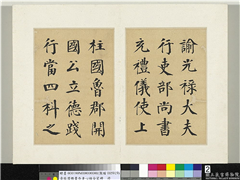 諭光祿大夫
行吏部尚書
充禮儀使上
柱國魯郡開
國公立德踐
行當四科之